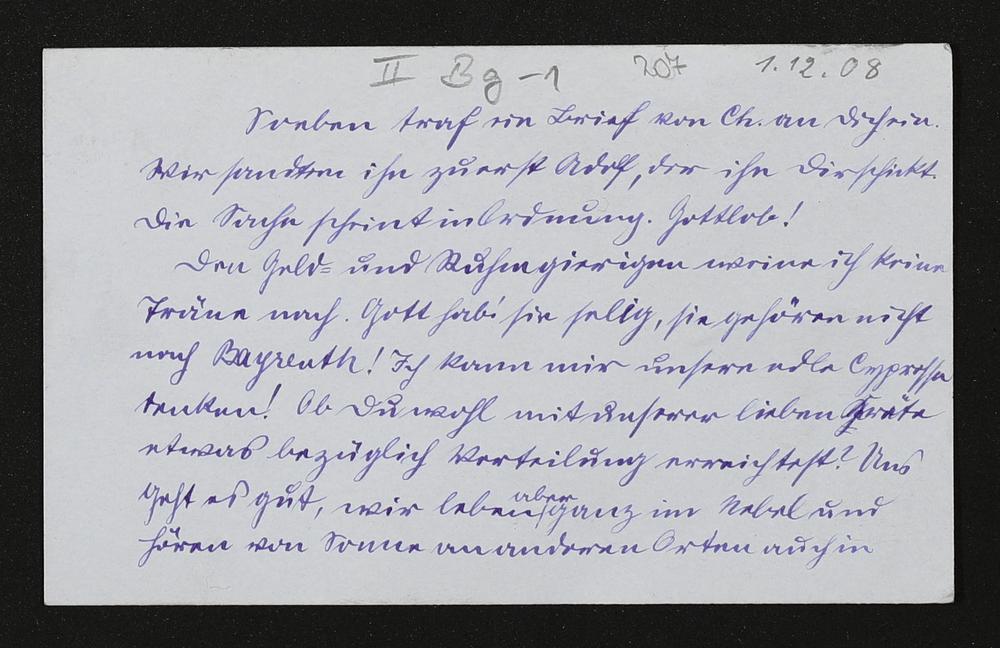 II Bg -1 207 1.12.08
Soeben traf ein Brief von Ch. an Dich ein.
Wir sandten ihn zuerst Adolf, der ihn Dir schickt.
Die Sache scheint in Ordnung. Gottlob!
Den Geld= und Ruhmgierigen weine ich keine
Träne nach. Gott hab' sie selig, sie gehören nicht
nach Bayreuth! Ich kann mir unsere edle Cypresse
denken! Ob Du wohl mit unserer lieben Gräte
etwas bezüglich Verteilung erreichtest? Uns
geht es gut, wir leben aber ganz im Nebel und
hören von Sonne an anderen Orten auch in